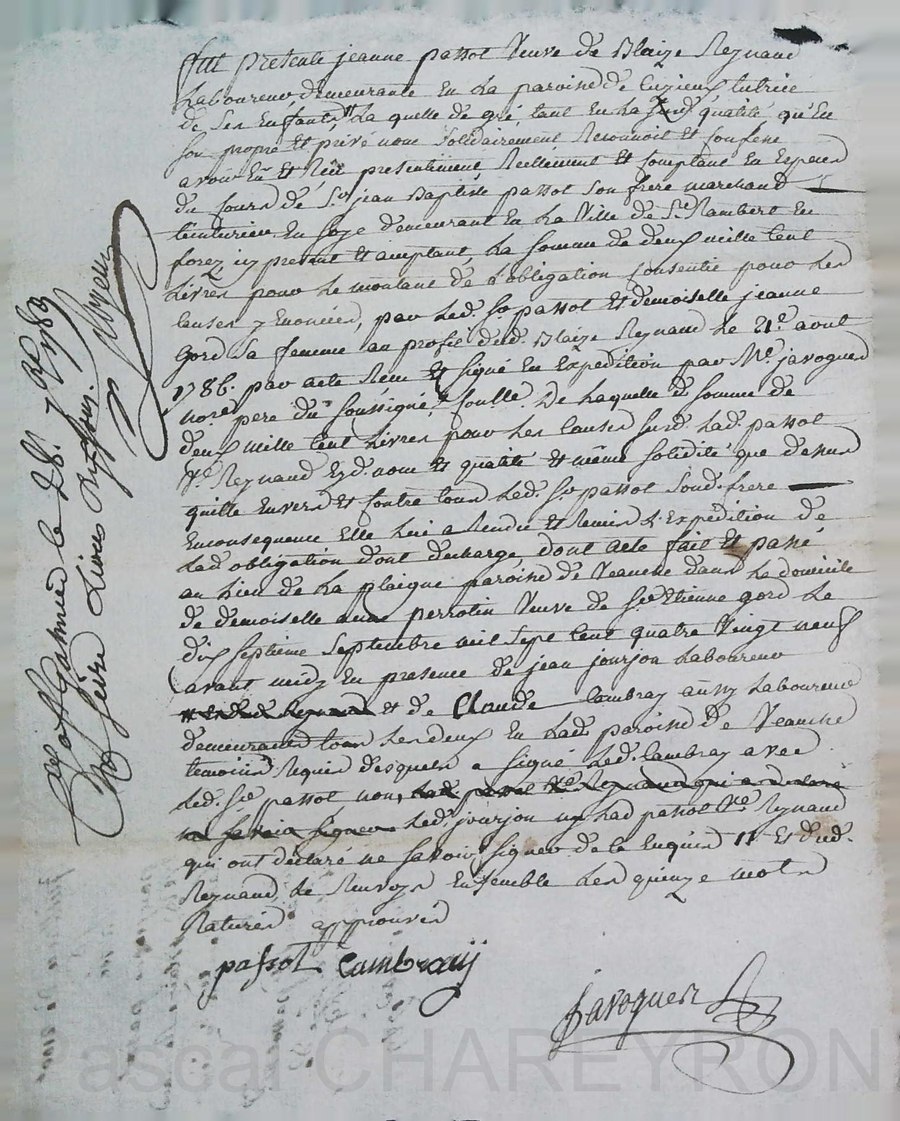 fut presente jeanne passot Veuve de Blaize Reynaud
Laboureur demeurante En La paroisse de Cuzieu tutrice
de Ses Enfants, La quelle de gré tant En La d. qualité qu'En
Son propre Et privé nom Solidairement Reconnoit Et Confesse
avoir Eu Et Reçu presentement Reellement Et Comptant En Especes
du Cours de Sr jean Baptiste passot Son frere marchand
teinturier En Soye demeurant En La Ville de St Rambert En
forez icy present Et acceptant, La Somme de deux mille Cent
Livres pour Le montant de L'obligation Consentie pour Les
Causes y Enoncées, par Led. Sr passot Et demoiselle jeanne
Gord Sa femme au profit dud. Blaize Reynaud Le 21e aout
1786. par acte Reçu Et Signé En Expedition par Me javogues
nore pere du Soussigné, De Laquelle d. Somme de
deux mille Cent Livres pour Les Causes Susd. Lad. passot
Ve Reynaud Esd. nom Et qualité Et même Solidité que dessus
quitte Envers Et Contre tous Led. Sr passot Sond. frere
Enconsequence Elle Lui a Rendu Et Remis L'Expedition de
Lad obligation dont decharge, dont acte fait Et passé
au Lieu de La plaigne paroisse de Veauche dans Le domicile
de demoiselle perrotin Veuve de Sr Etienne gord Le
dix Septieme Septembre mil Sept Cent quatre Vingt neuf
avant midy En presence de jean jourjon Laboureur
et de Claude Cambray aussy Laboureur
demeurants tous Les deux En Lad. paroisse de Veauche
temoins Requis desquels a Signé Led. Cambray avec
Led. Sr passot non, Lad. passot Ve Reynaud qui a declaré
ne Savoir Signer Led. jourjon ny Lad passot Ve Reynaud
qui ont declaré ne Savoir Signer de ce Enquis Et dud.
Reynaud de Renvoys Ensemble Les quinze mots
Raturés approuvés
passot Cambraÿ
Javogues
Controllé à St Galmier le 28. 7bre 1789
Reçu Livres
Pascal CHAREYRON